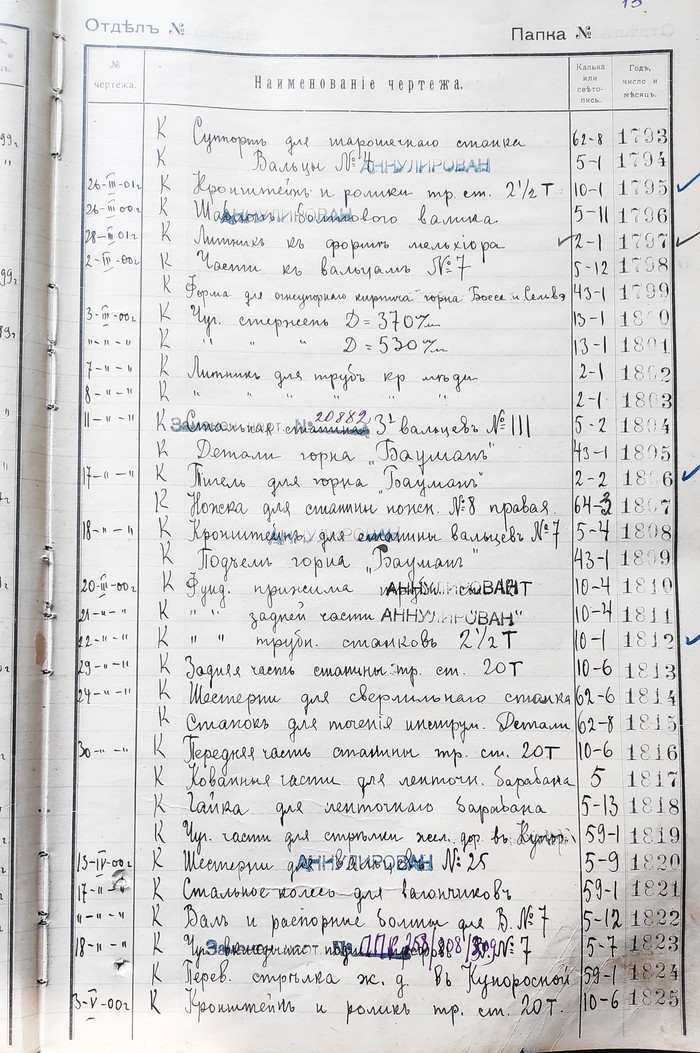 13
Отдѣлъ №
Папка №
№ чертежа.
Наименованіе чертежа.
Калька или свѣтопись.
Годъ, число и мѣсяцъ.
К Суппортъ для шарошечнаго станка 62-8 1793
К Вальцы № 4 АННУЛИРОВАН 5-1 1794
26-III-01г К Кронштейнъ и ролики тр. ст. 2½ Т 10-1 1795
26-III-00г К Шаблонъ болтового валика АННУЛИРОВАН 5-11 1796
28-III 01г К Литникъ къ формѣ мельхіора 2-1 1797
2-III-00г К Части къ вальцамъ № 7 5-12 1798
К Форма для огнеупорнаго кирпича горна Босса и 43-1 1799
3-III-00г К Чуг. стержень D = 370 м/м 13-1 1800
"-"-" К " " " D = 530 м/м 13-1 1801
7-"-" К Литникъ для трубъ кр мѣди 2-1 1802
8-"-" К " " " " " 2-1 1803
11-"-" К Стальная № 20882 3х вальцевъ № III 5-2 1804
К Детали горна „Бауманъ" 43-1 1805
17-"-" К Тигель для горна „Бауманъ" 2-2 1806
К Ножка для станины № 8 правая. 64-3 1807
18-"-" К Кронштейнъ для станины вальцевъ № 7 АННУЛИРОВАН 5-4 1808
К Подъемъ горна „Бауманъ" 43-1 1809
20-III-00г К Фунд. прижима АННУЛИРОВАН Т 10-4 1810
21-"-" К " " задней части АННУЛИРОВАН " 10-4 1811
22-"-" К " " трубн. станковъ 2½ Т 10-1 1812
29-"-" К Задняя часть станины тр. ст. 20Т 10-6 1813
24-"-" К Шестерни для сверлильнаго станка 62-6 1814
К Станокъ для точенія инструм. Детали 62-8 1815
30-"-" К Передняя часть станины тр. ст. 20Т 10-6 1816
К Кованныя части для ленточн. барабана 5 1817
К Гайка для ленточнаго барабана 5-13 1818
К Чуг. части для стрѣлки жел. дор. въ 59-1 1819
13-IV-00г К Шестерни для вальцевъ № 25 АННУЛИРОВАН 5-9 1820
17-"-" К Стальное колесо для вагончиковъ 59-1 1821
"-"-" К Валъ и распорные болты для В. № 7 5-12 1822
18-"-" К Чуг. № ППК 258/208/309 В. № 7 5-7 1823
К Перев. стрѣлка ж. д. въ Купоросной 59-1 1824
3-V-00г К Кронштейнъ и роликъ тр. ст. 20Т. 10-6 1825